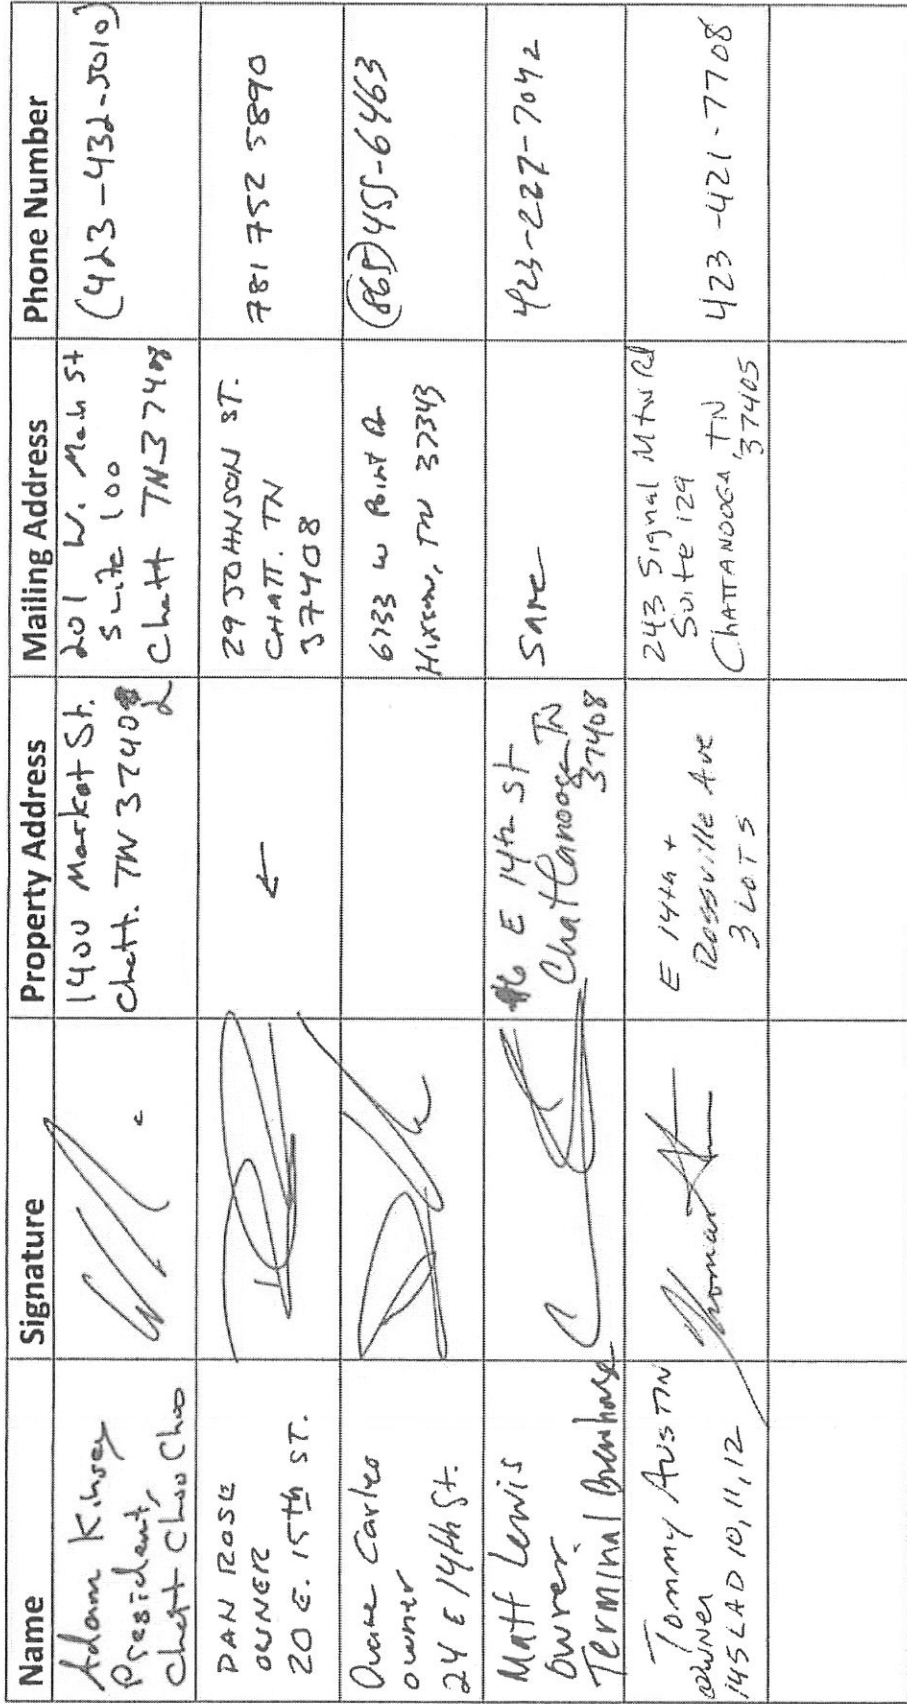 Name Signature Property Address Mailing Address Phone Number
Adam Kinsey
President,
Chatt Choo Choo
1400 Market St.
Chatt. TN 37402
201 W. Main St
Suite 100
Chatt TN 37408
(423-432-5010)
DAN ROSE
OWNER
20 E. 15th ST.
←
29 JOHNSON ST.
CHATT. TN
37408
781 752 5890
Carleo
owner
24 E 14th St.
6733 W Point Dr
Hixson, TN 37343
(865) 455-6463
Matt Lewis
owner.
Terminal Brewhouse
#6 E 14th St
Chattanooga TN
37408
Same
423-227-7042
Tommy AUSTIN
OWNER
145LAD 10, 11, 12
E 14th +
Rossville Ave
3 LOTS
243 Signal Mtn Rd
Suite 129
CHATTANOOGA, TN
37405
423-421-7708